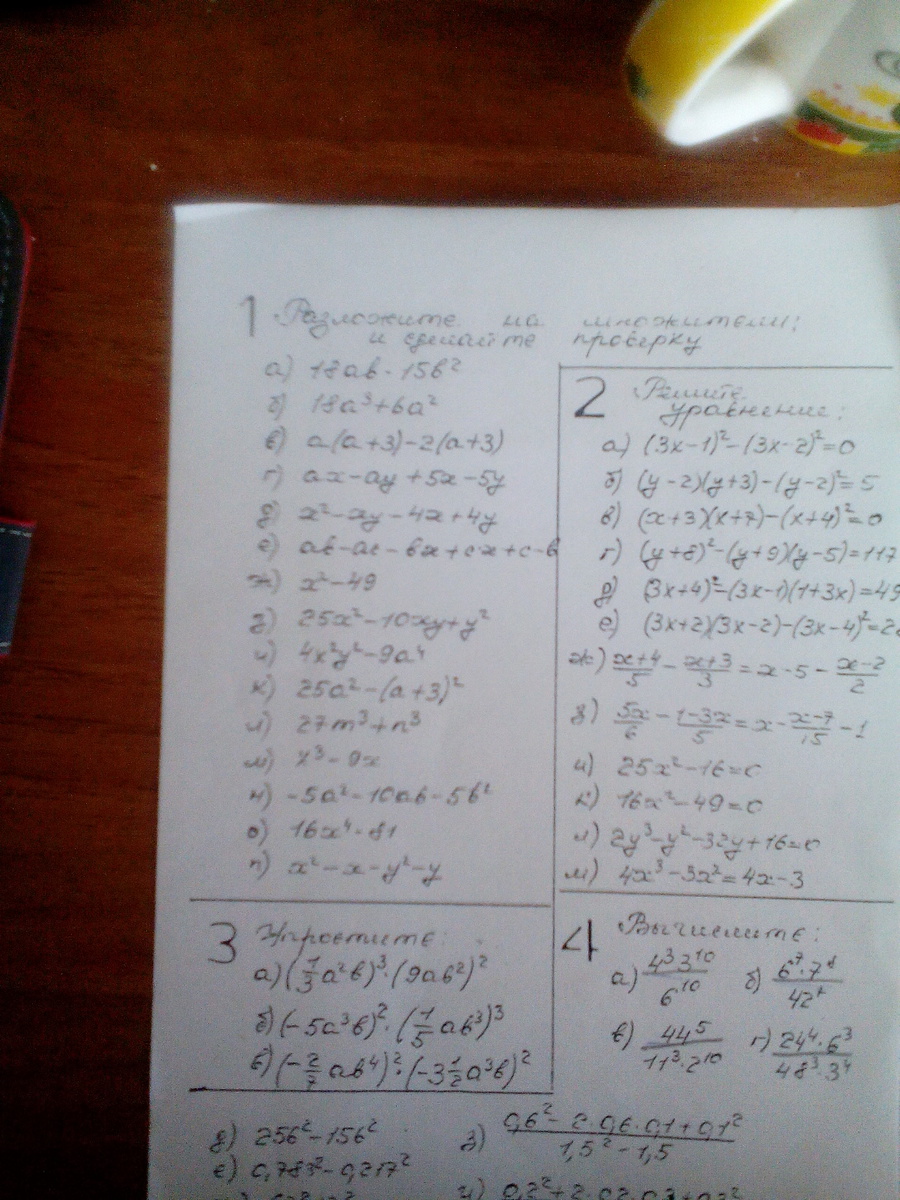 1 Разложите на множители:
и сделайте проверку
а) 18ab - 15b²
б) 18a³+6a²
в) a(a+3)-2(a+3)
г) ax-ay+5x-5y
д) x²-xy-4x+4y
е) ab-ac-bx+cx+c-b
ж) x²-49
з) 25x²-10xy+y²
и) 4x²y²-9a⁴
к) 25a²-(a+3)²
л) 27m³+n³
м) x³-9x
н) -5a²-10ab-5b²
о) 16x⁴-81
п) x²-x-y²-y
2 Решите
уравнение:
а) (3x-1)²-(3x-2)²=0
б) (y-2)(y+3)-(y-2)²=5
в) (x+3)(x+7)-(x+4)²=0
г) (y+8)²-(y+9)(y-5)=117
д) (3x+4)²-(3x-1)(1+3x)=49
е) (3x+2)(3x-2)-(3x-4)²=
ж) (x+4)/5 - (x+3)/3 = x-5-(x-2)/2
з) 5x/6 - (1-3x)/5 = x-(x-7)/15-1
и) 25x²-16=0
к) 16x²-49=0
л) 2y³-y²-32y+16=0
м) 4x³-3x²=4x-3
3 Упростите:
а) (1/3 a²b)³·(9ab²)²
б) (-5a³b)²·(1/5 ab³)³
в) (-2/7 ab⁴)²·(-3 1/2 a³b)²
4 Вычислите:
а) 4³3¹⁰/6¹⁰ б) 
в) 44⁵/11³·2¹⁰ г) 24⁴·6³/48³·3⁴
д) 256²-156² з) 0,6²-2·0,6·0,1+0,1²/1,5²-1,5
е) 0,783²-0,217²